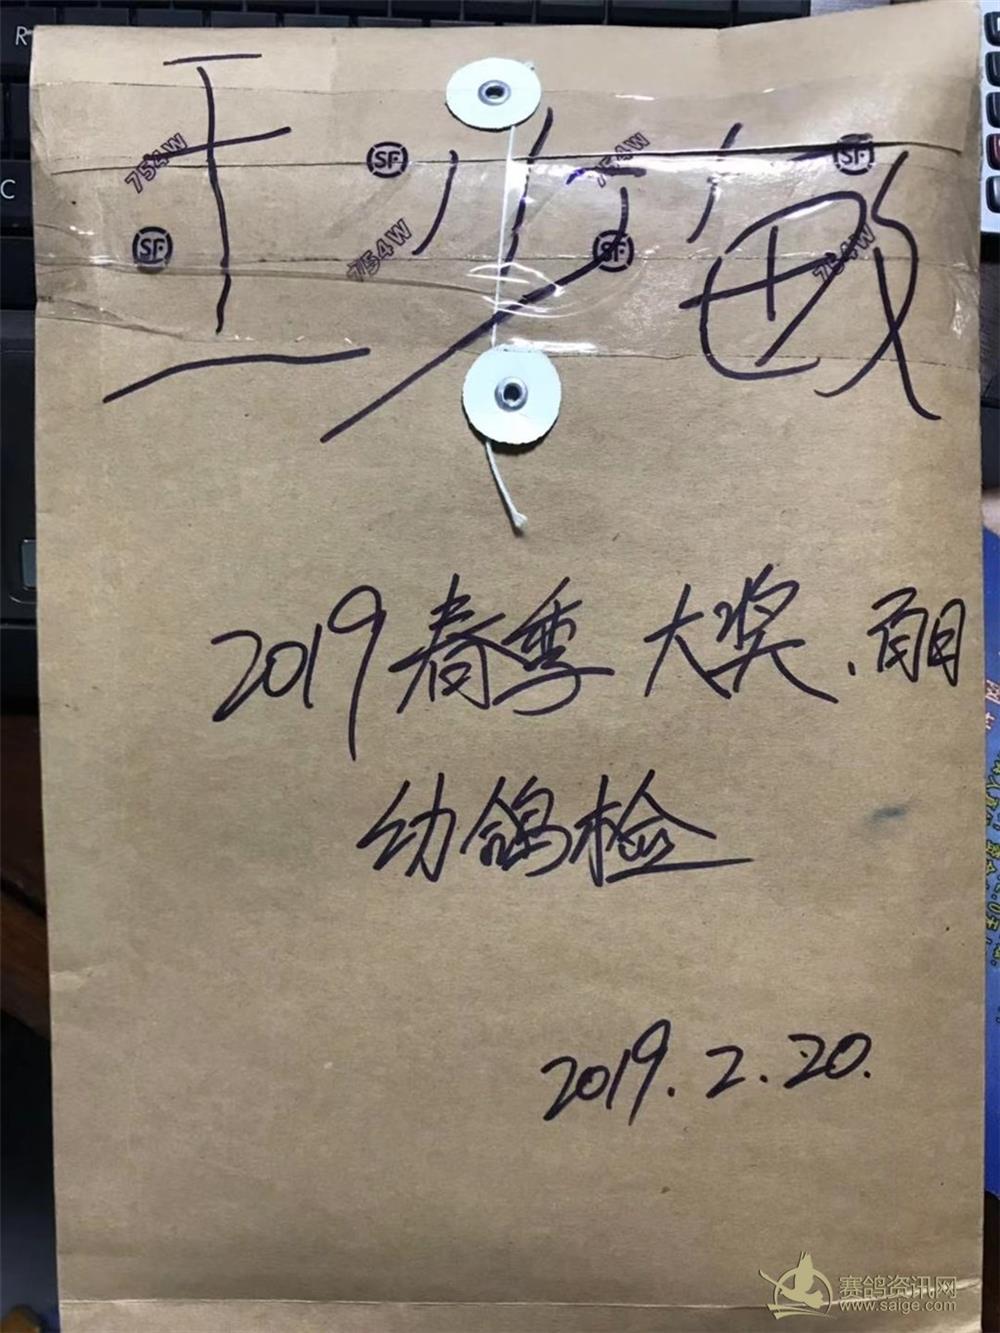 王少敏
754W
SF
754W
SF
SF
754W
SF
754W
2019春季大奖、
幼鸽检
2019.2.20.
R
C
赛鸽资讯网
www.saige.com